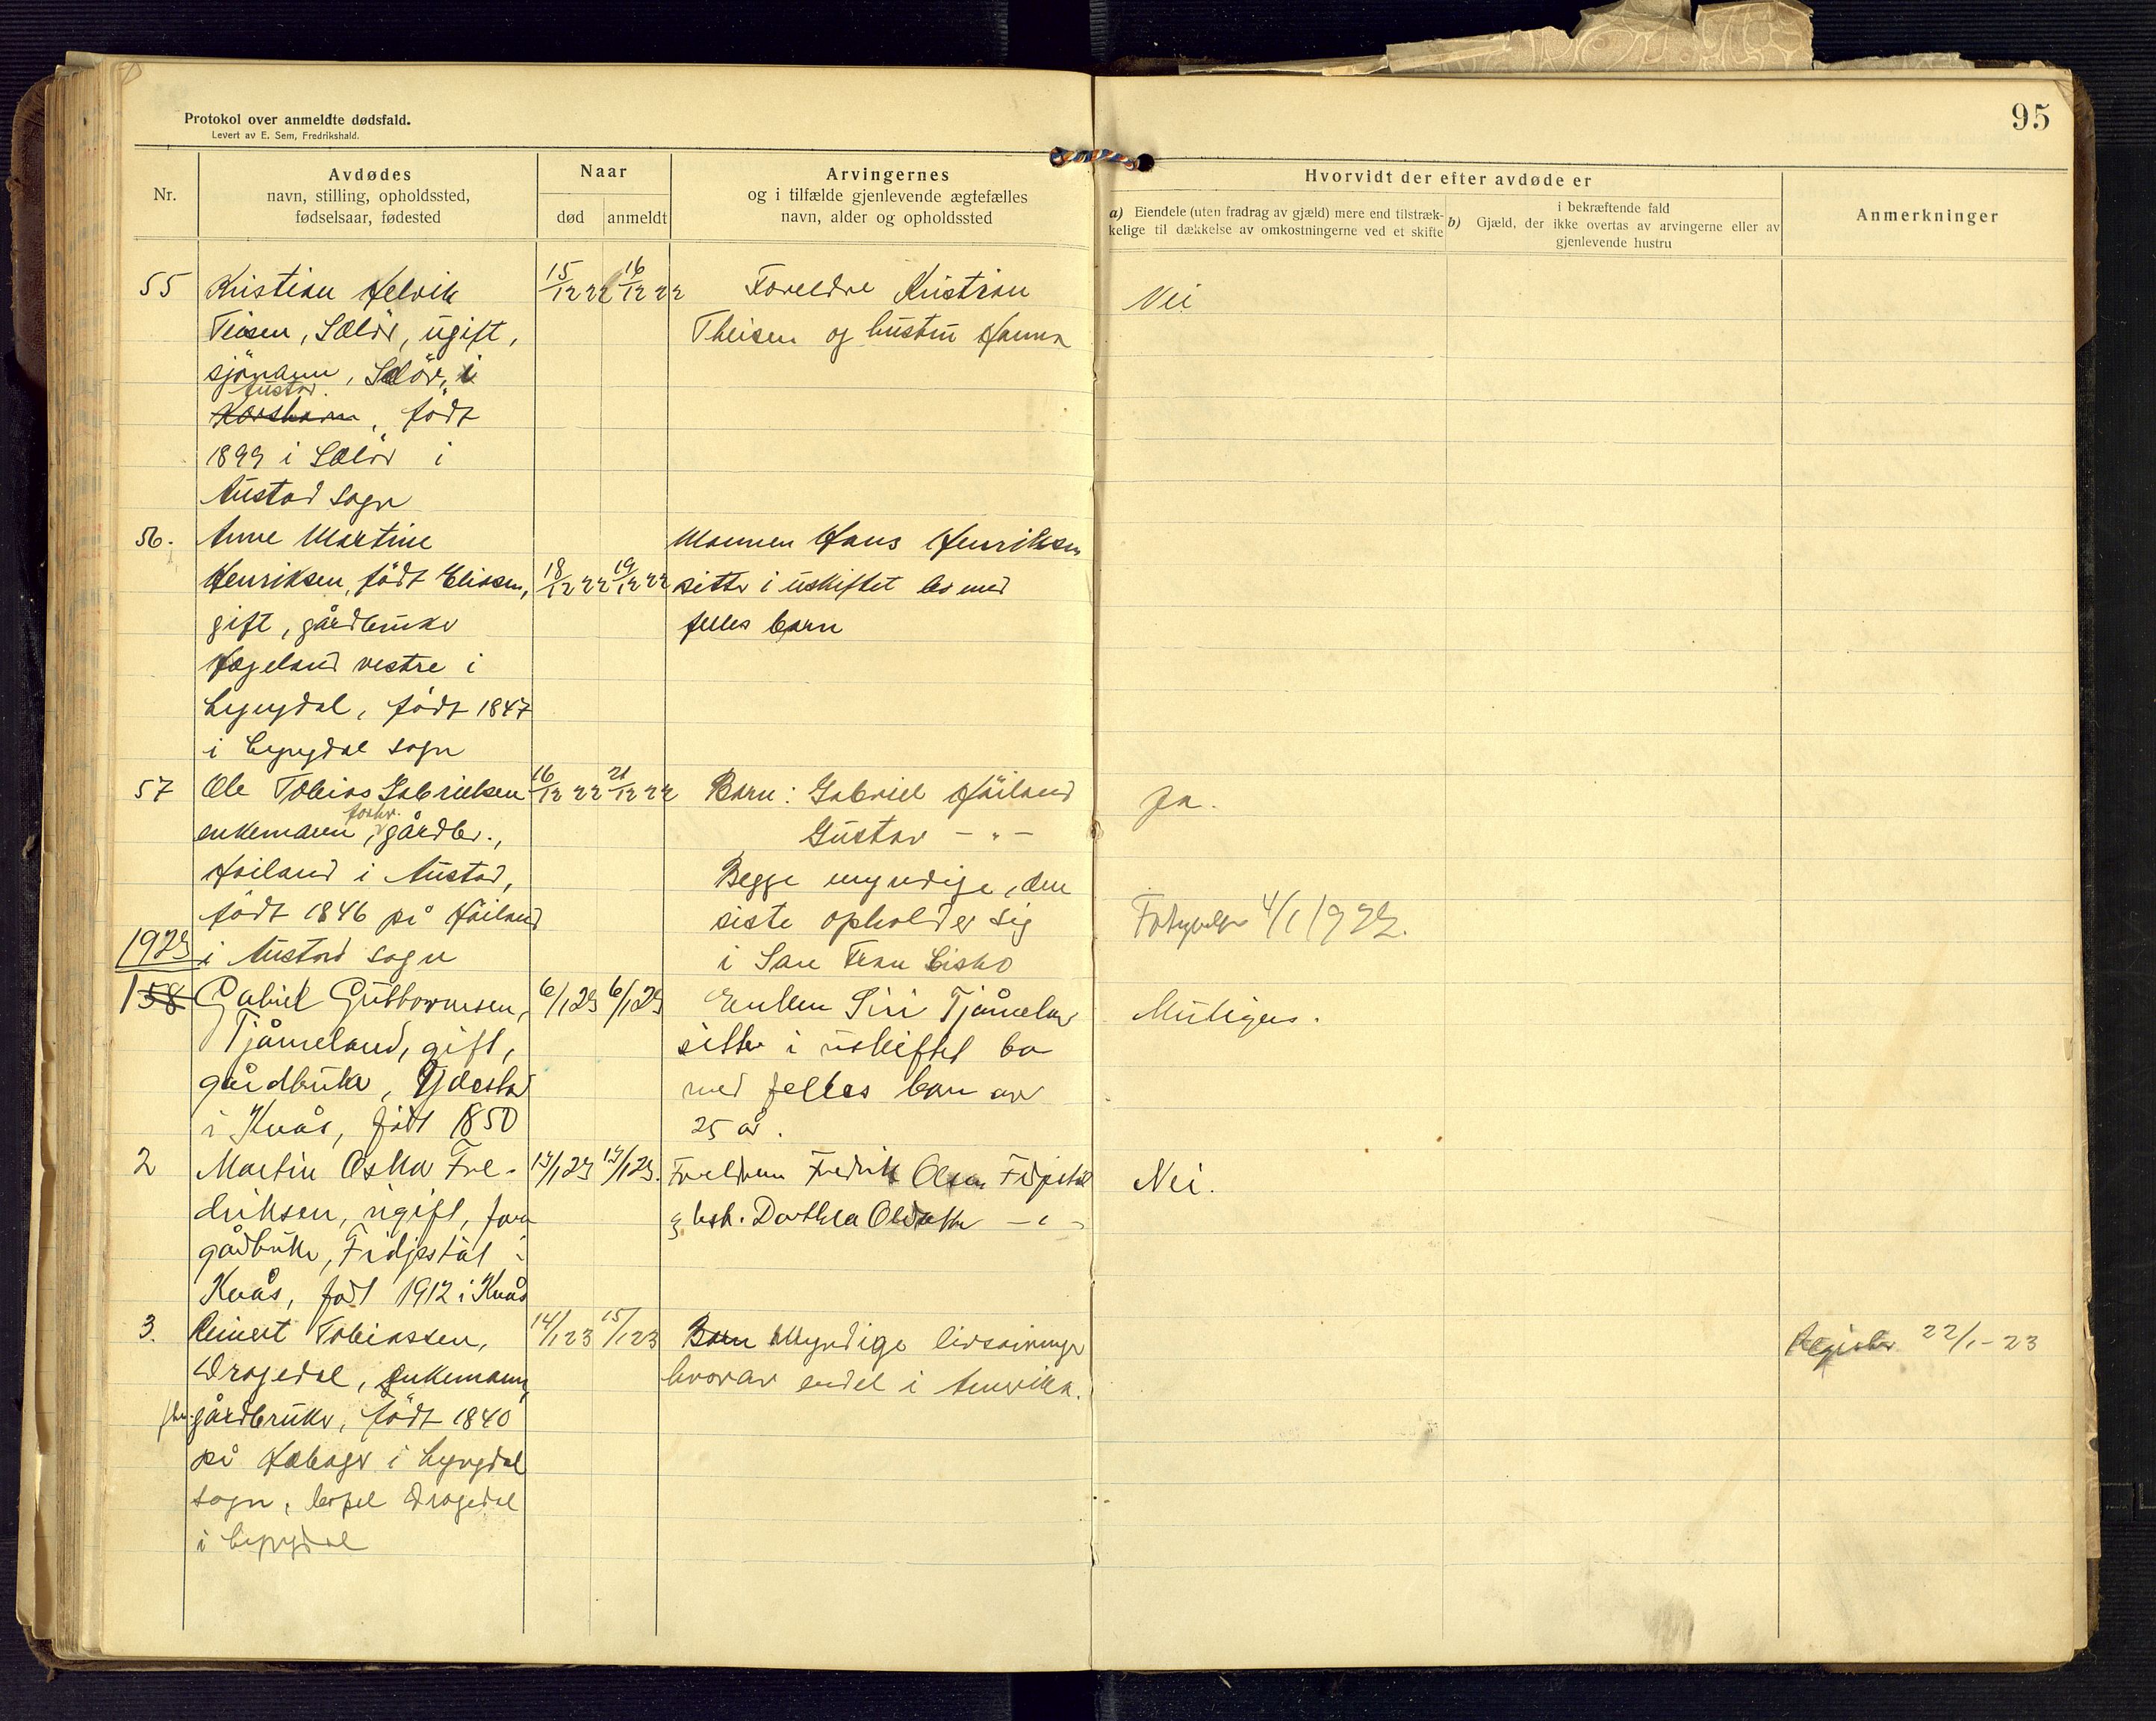 Protokol over anmeldte dødsfald.
Levert av E. Sem, Fredrikshald.
95
Nr.
Avdødes
navn, stilling, opholdssted,
fødselsaar, fødested
Naar
død
anmeldt
Arvingernes
og i tilfælde gjenlevende ægtefælles
navn, alder og opholdssted
Hvorvidt der efter avdøde er
a) Eiendele (uten fradrag av gjæld) mere end tilstræk-
kelige til dækkelse av omkostningerne ved et skifte
b) Gjæld, der i bekræftende fald
ikke overtas av arvingerne eller av
gjenlevende hustru
Anmerkninger
55 Kristian Helvik 15/12 22 16/12 22 Foreldre Kristian Nei
Teisen, Selör, ugift, Theisen og hustru Hanna
sjömann, Selör, i
Austad.
Korshavn, födt
1899 i Selör i
Austad sogn
56. Anne Martine Mannen Hans Henriksen
Henriksen, födt Eliasen, 18/12 22 19/12 22 sitter i uskiftet bo med
gift, gårdbruker felles barn
Hægeland vestre i
Lyngdal, födt 1847
i Lyngdal sogn
57 Ole Tobias Gabrielsen 16/12 22 21/12 22 Barn: Gabriel Höiland Ja.
forhv.
enkemann, gårdbr., Gustav - " -
Höiland i Austad, Begge myndige, den
födt 1846 på Höiland siste opholder sig 4/1 1923.
1923 i Austad sogn i San Fran Cisko
1 58 Gabriel Guttormsen, 6/1 23 6/1 23 Enken Siri Tjåmeland Muligens.
Tjåmeland, gift, sitter i uskiftet bo
gårdbruker, med felles barn av
i Kvås, født 1850 25 år.
2 Martin Oskar Fre- 14/1 23 Foreldrene Fredrik Olsen Fidjestøl Nei.
driksen, ugift, & hst. Dorthea
gårdbruker, Fidjestøl i
Kvås, født 1912 i Kvås
3. Reinert Tobiassen, 14/1 23 15/1 23 Barn Myndige livsarvinger Register 22/1-23
Dragedal, enkemann, hvorav endel i Amerika.
fhv. gårdbruker, födt 1840
på i Lyngdal
sogn, Dragedal
i Lyngdal